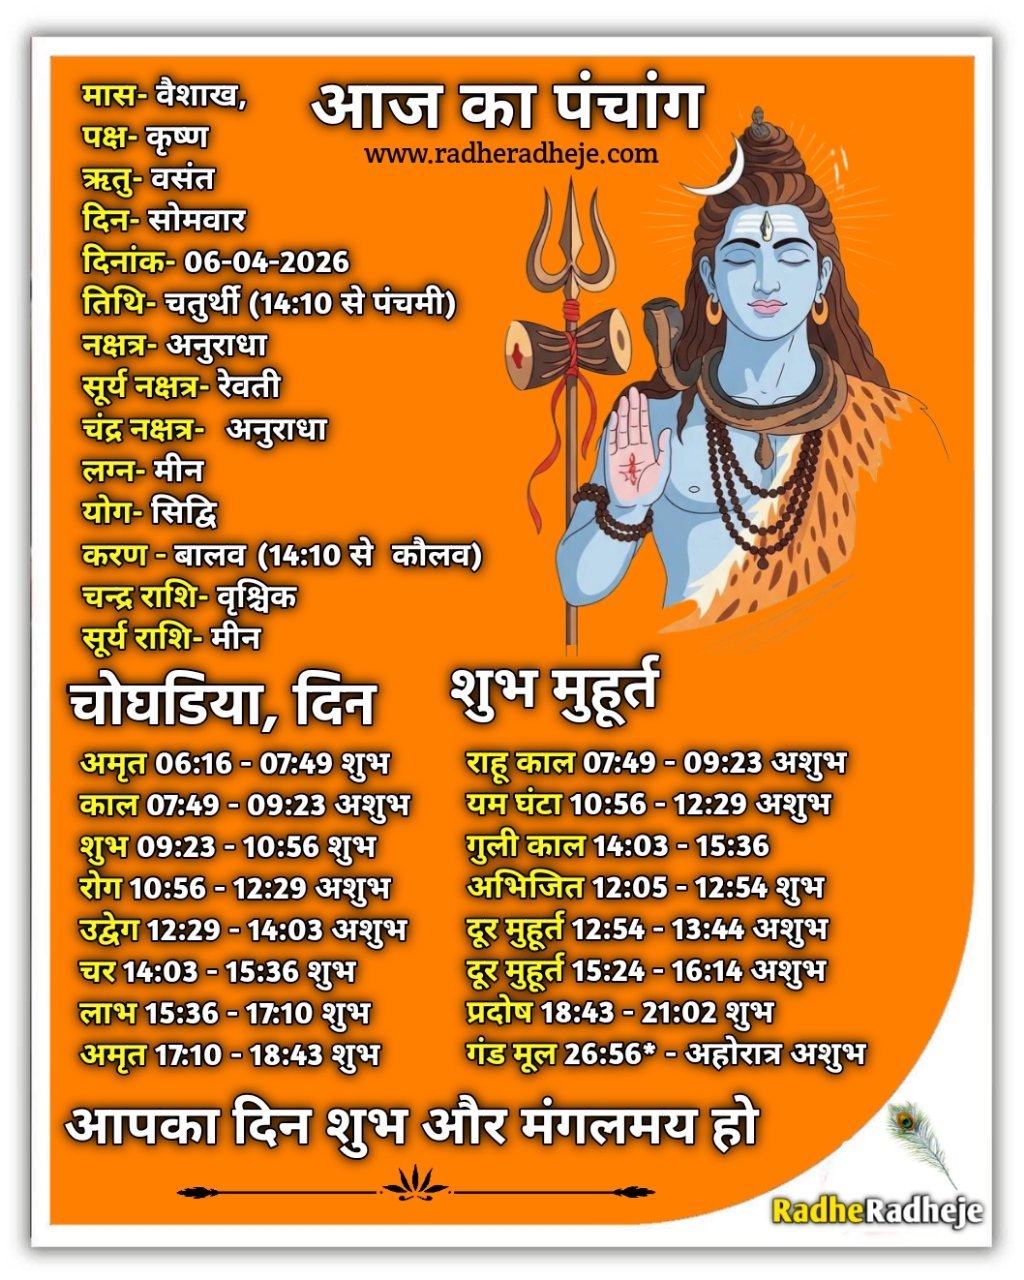 आज का पंचांग
www.radheradheje.com
मास- वैशाख,
पक्ष- कृष्ण
ऋतु- वसंत
दिन- सोमवार
दिनांक- 06-04-2026
तिथि- चतुर्थी (14:10 से पंचमी)
नक्षत्र- अनुराधा
सूर्य नक्षत्र- रेवती
चंद्र नक्षत्र- अनुराधा
लग्न- मीन
योग- सिद्वि
करण - बालव (14:10 से कौलव)
चन्द्र राशि- वृश्चिक
सूर्य राशि- मीन
चोघडिया, दिन
अमृत 06:16 - 07:49 शुभ
काल 07:49 - 09:23 अशुभ
शुभ 09:23 - 10:56 शुभ
रोग 10:56 - 12:29 अशुभ
उद्वेग 12:29 - 14:03 अशुभ
चर 14:03 - 15:36 शुभ
लाभ 15:36 - 17:10 शुभ
अमृत 17:10 - 18:43 शुभ
शुभ मुहूर्त
राहू काल 07:49 - 09:23 अशुभ
यम घंटा 10:56 - 12:29 अशुभ
गुली काल 14:03 - 15:36
अभिजित 12:05 - 12:54 शुभ
दूर मुहूर्त 12:54 - 13:44 अशुभ
दूर मुहूर्त 15:24 - 16:14 अशुभ
प्रदोष 18:43 - 21:02 शुभ
गंड मूल 26:56* - अहोरात्र अशुभ
आपका दिन शुभ और मंगलमय हो
RadheRadheje